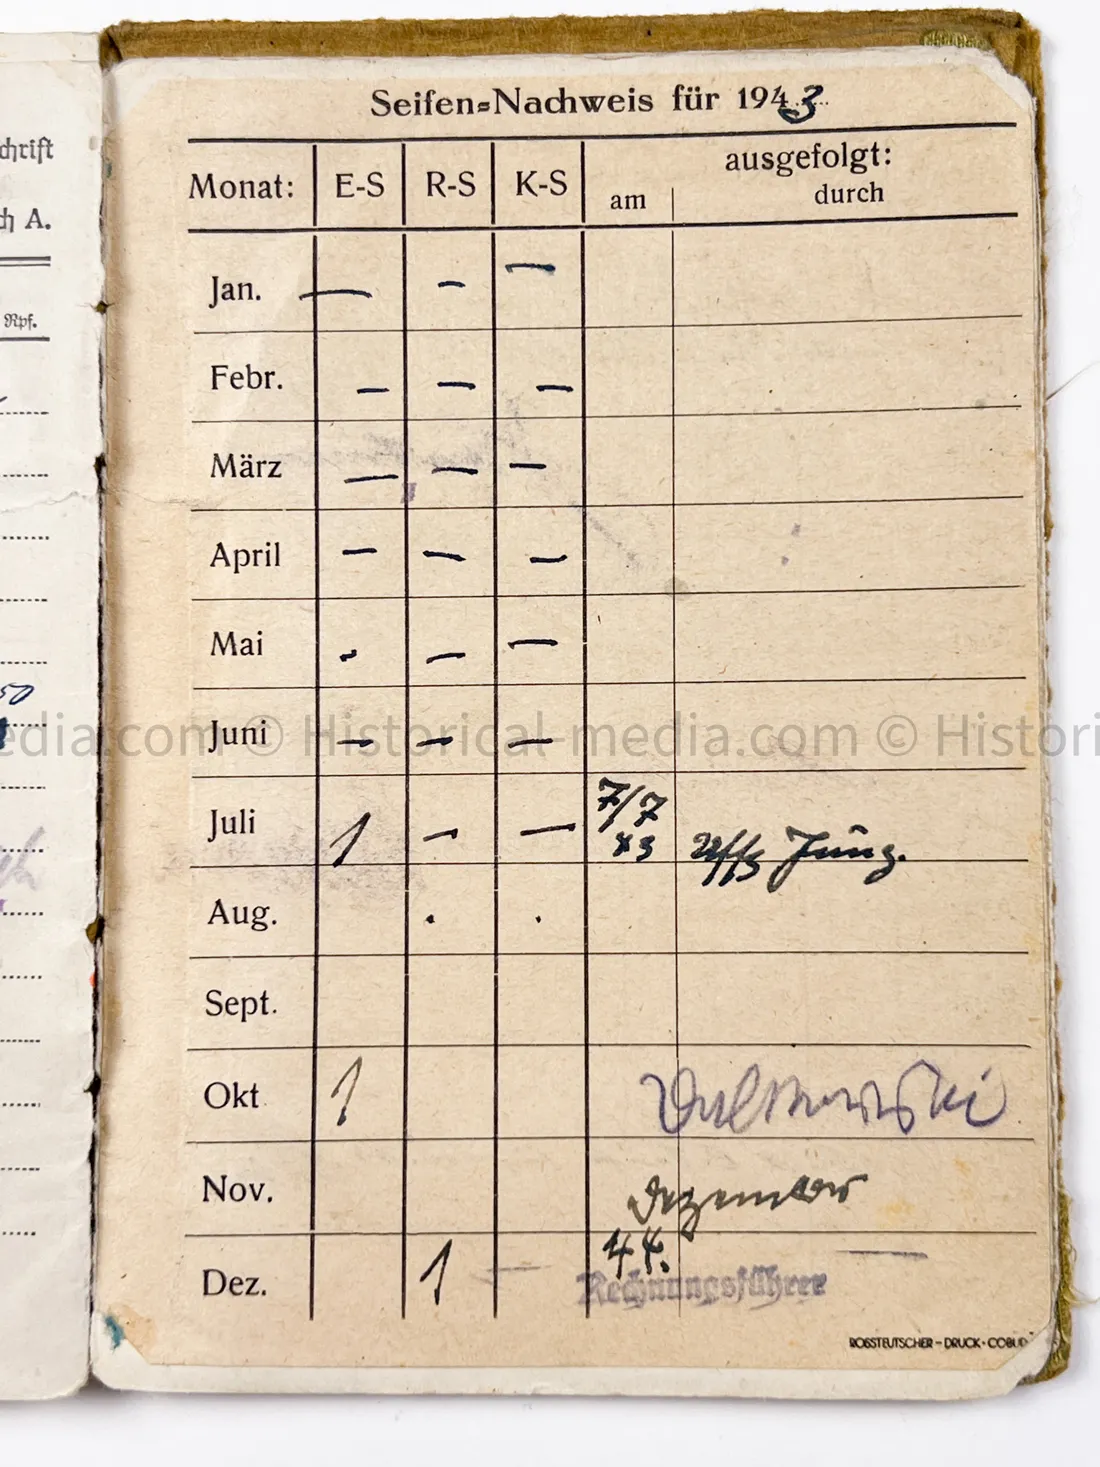 chrift
ch A.
Rpf.
50
Seifen=Nachweis für 1943
Monat: E-S R-S K-S ausgefolgt:
am durch
Jan. — — —
Febr. — — —
März — — —
April — — —
Mai - — —
Juni — — —
Juli 1 — — 7/7 43 Uffz Jung.
Aug. . .
Sept.
Okt 1
Nov. Dezember
Dez. 1 44.
Rechnungsführer
ROSSTEUTSCHER-DRUCK·COBU
edia.com © Historical-media.com © Histori